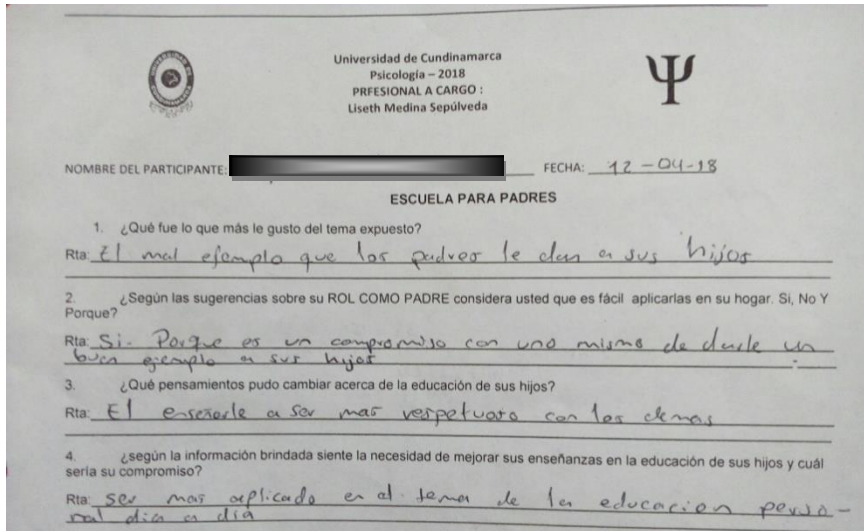 Universidad de Cundinamarca
Psicología – 2018
PRFESIONAL A CARGO :
Liseth Medina Sepúlveda
NOMBRE DEL PARTICIPANTE: FECHA: 12-04-18
ESCUELA PARA PADRES
1. ¿Qué fue lo que más le gusto del tema expuesto?
Rta: El mal ejemplo que los padres le dan a sus hijos
2. ¿Según las sugerencias sobre su ROL COMO PADRE considera usted que es fácil aplicarlas en su hogar. Si, No Y
Porque?
Rta: Si. Porque es un compromiso con uno mismo de darle un
buen ejemplo a sus hijos
3. ¿Qué pensamientos pudo cambiar acerca de la educación de sus hijos?
Rta: El enseñarle a ser mas respetuoso con los demas
4. ¿según la información brindada siente la necesidad de mejorar sus enseñanzas en la educación de sus hijos y cuál
sería su compromiso?
Rta: ser mas aplicado en el tema de la educacion perso-
nal dia a dia